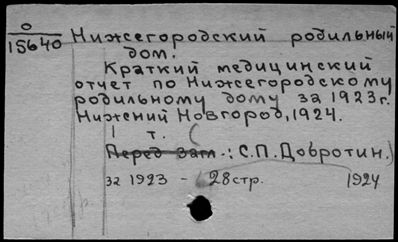 О
15640
Нижегородский родильный
дом.
Краткий медицинский
отчет по Нижегородскому
родильному дому за 1923г.
Нижний Новгород, 1924.
1 т. (
Перед загл.: С.П.Добротин.)
за 1923 - 28стр. 1924